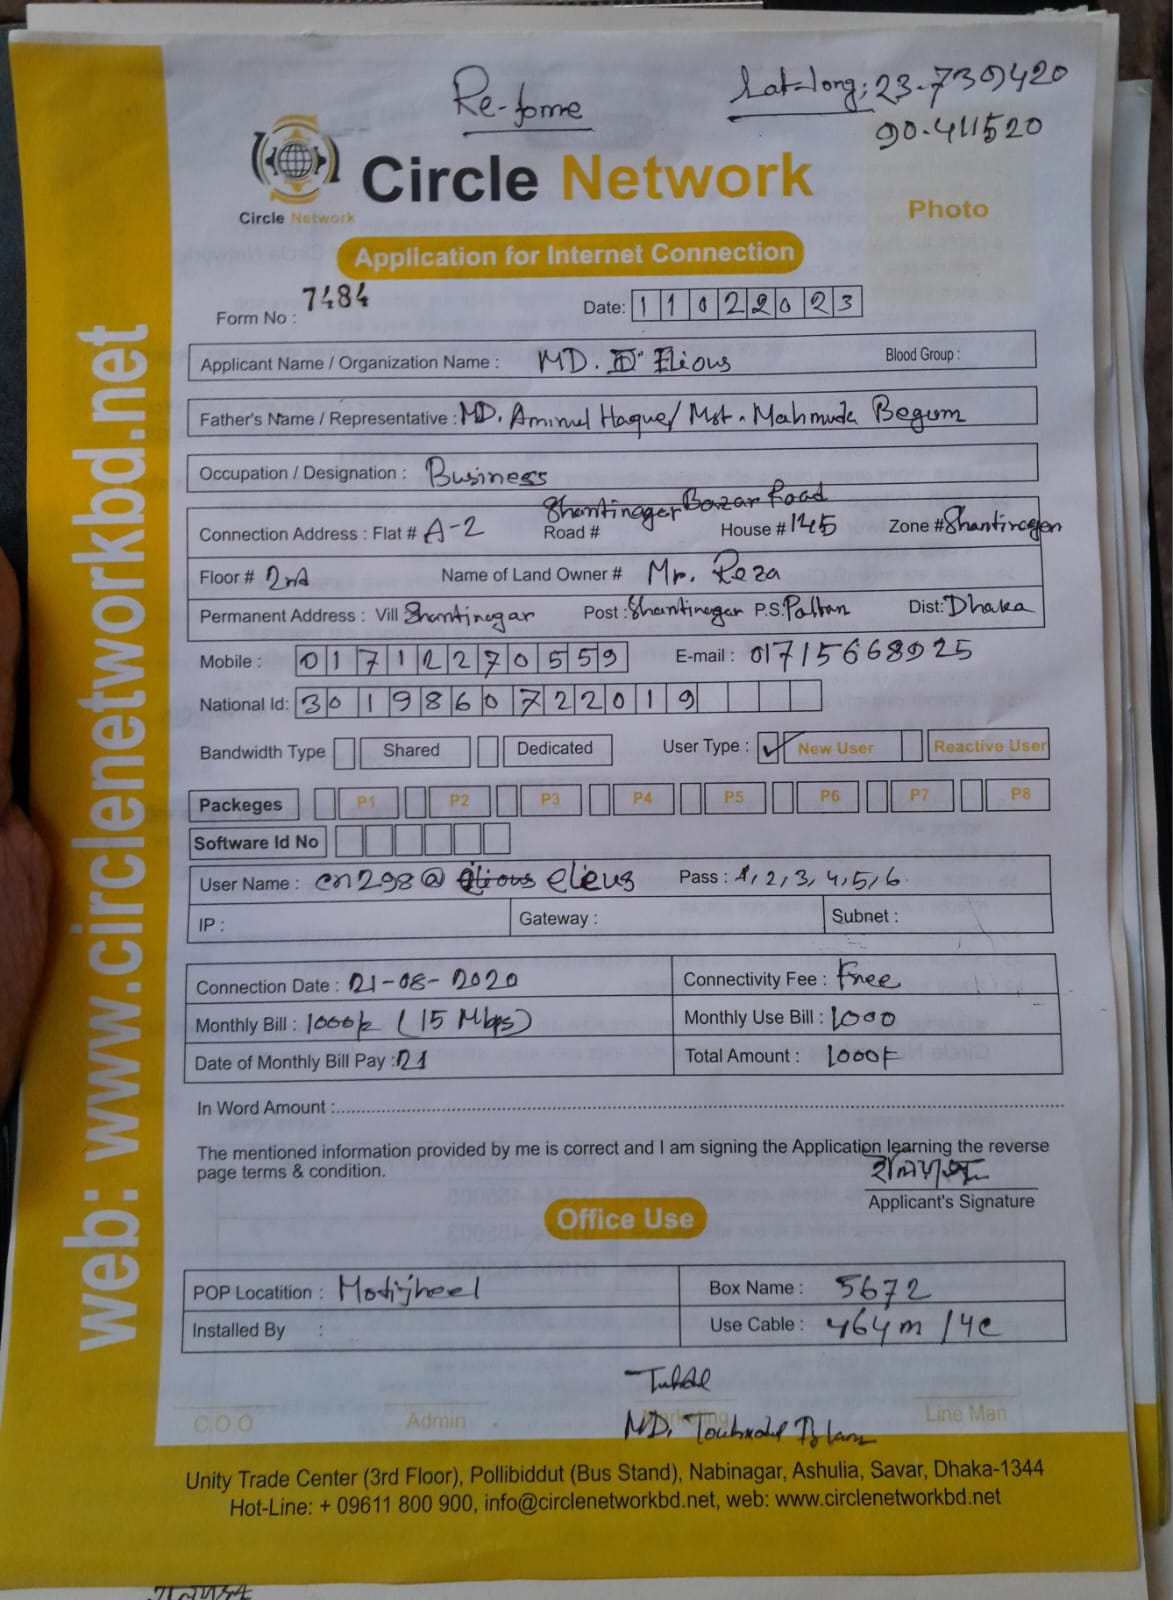 Re-forme
Lat-long; 23.7309420
90.411520
Circle Network
Circle Network
Photo
Application for Internet Connection
Form No : 7484
Date: 11022023
Applicant Name / Organization Name : MD. Elious Blood Group :
Father's Name / Representative : MD. Aminul Haque/ Mst. Mahmuda Begum
Occupation / Designation : Business
Shantinagar Bazar Road
Connection Address : Flat # A-2 Road # House # 145 Zone # Shantinagar
Floor # 2nd Name of Land Owner # Mr. Reza
Permanent Address : Vill Shantinagar Post : Shantinagar P.S: Paltan Dist: Dhaka
Mobile : 01712270559 E-mail : 01715668925
National Id: 3019860722019
Bandwidth Type Shared Dedicated User Type : ✓ New User Reactive User
Packeges P1 P2 P3 P4 P5 P6 P7 P8
Software Id No
User Name : cn298@ elieus Pass : 1,2,3,4,5,6.
IP : Gateway : Subnet :
Connection Date : 21-08-2020 Connectivity Fee : Free
Monthly Bill : 1000k (15 Mbps) Monthly Use Bill : 1000
Date of Monthly Bill Pay : 21 Total Amount : 1000
In Word Amount :
The mentioned information provided by me is correct and I am signing the Application learning the reverse
page terms & condition.
Applicant's Signature
Office Use
POP Locatition : Motijheel Box Name : 5672
Installed By : Use Cable : 464m /4c
C.O.O Admin Marketing Line Man
MD.
Unity Trade Center (3rd Floor), Pollibiddut (Bus Stand), Nabinagar, Ashulia, Savar, Dhaka-1344
Hot-Line: + 09611 800 900, info@circlenetworkbd.net, web: www.circlenetworkbd.net
web: www.circlenetworkbd.net